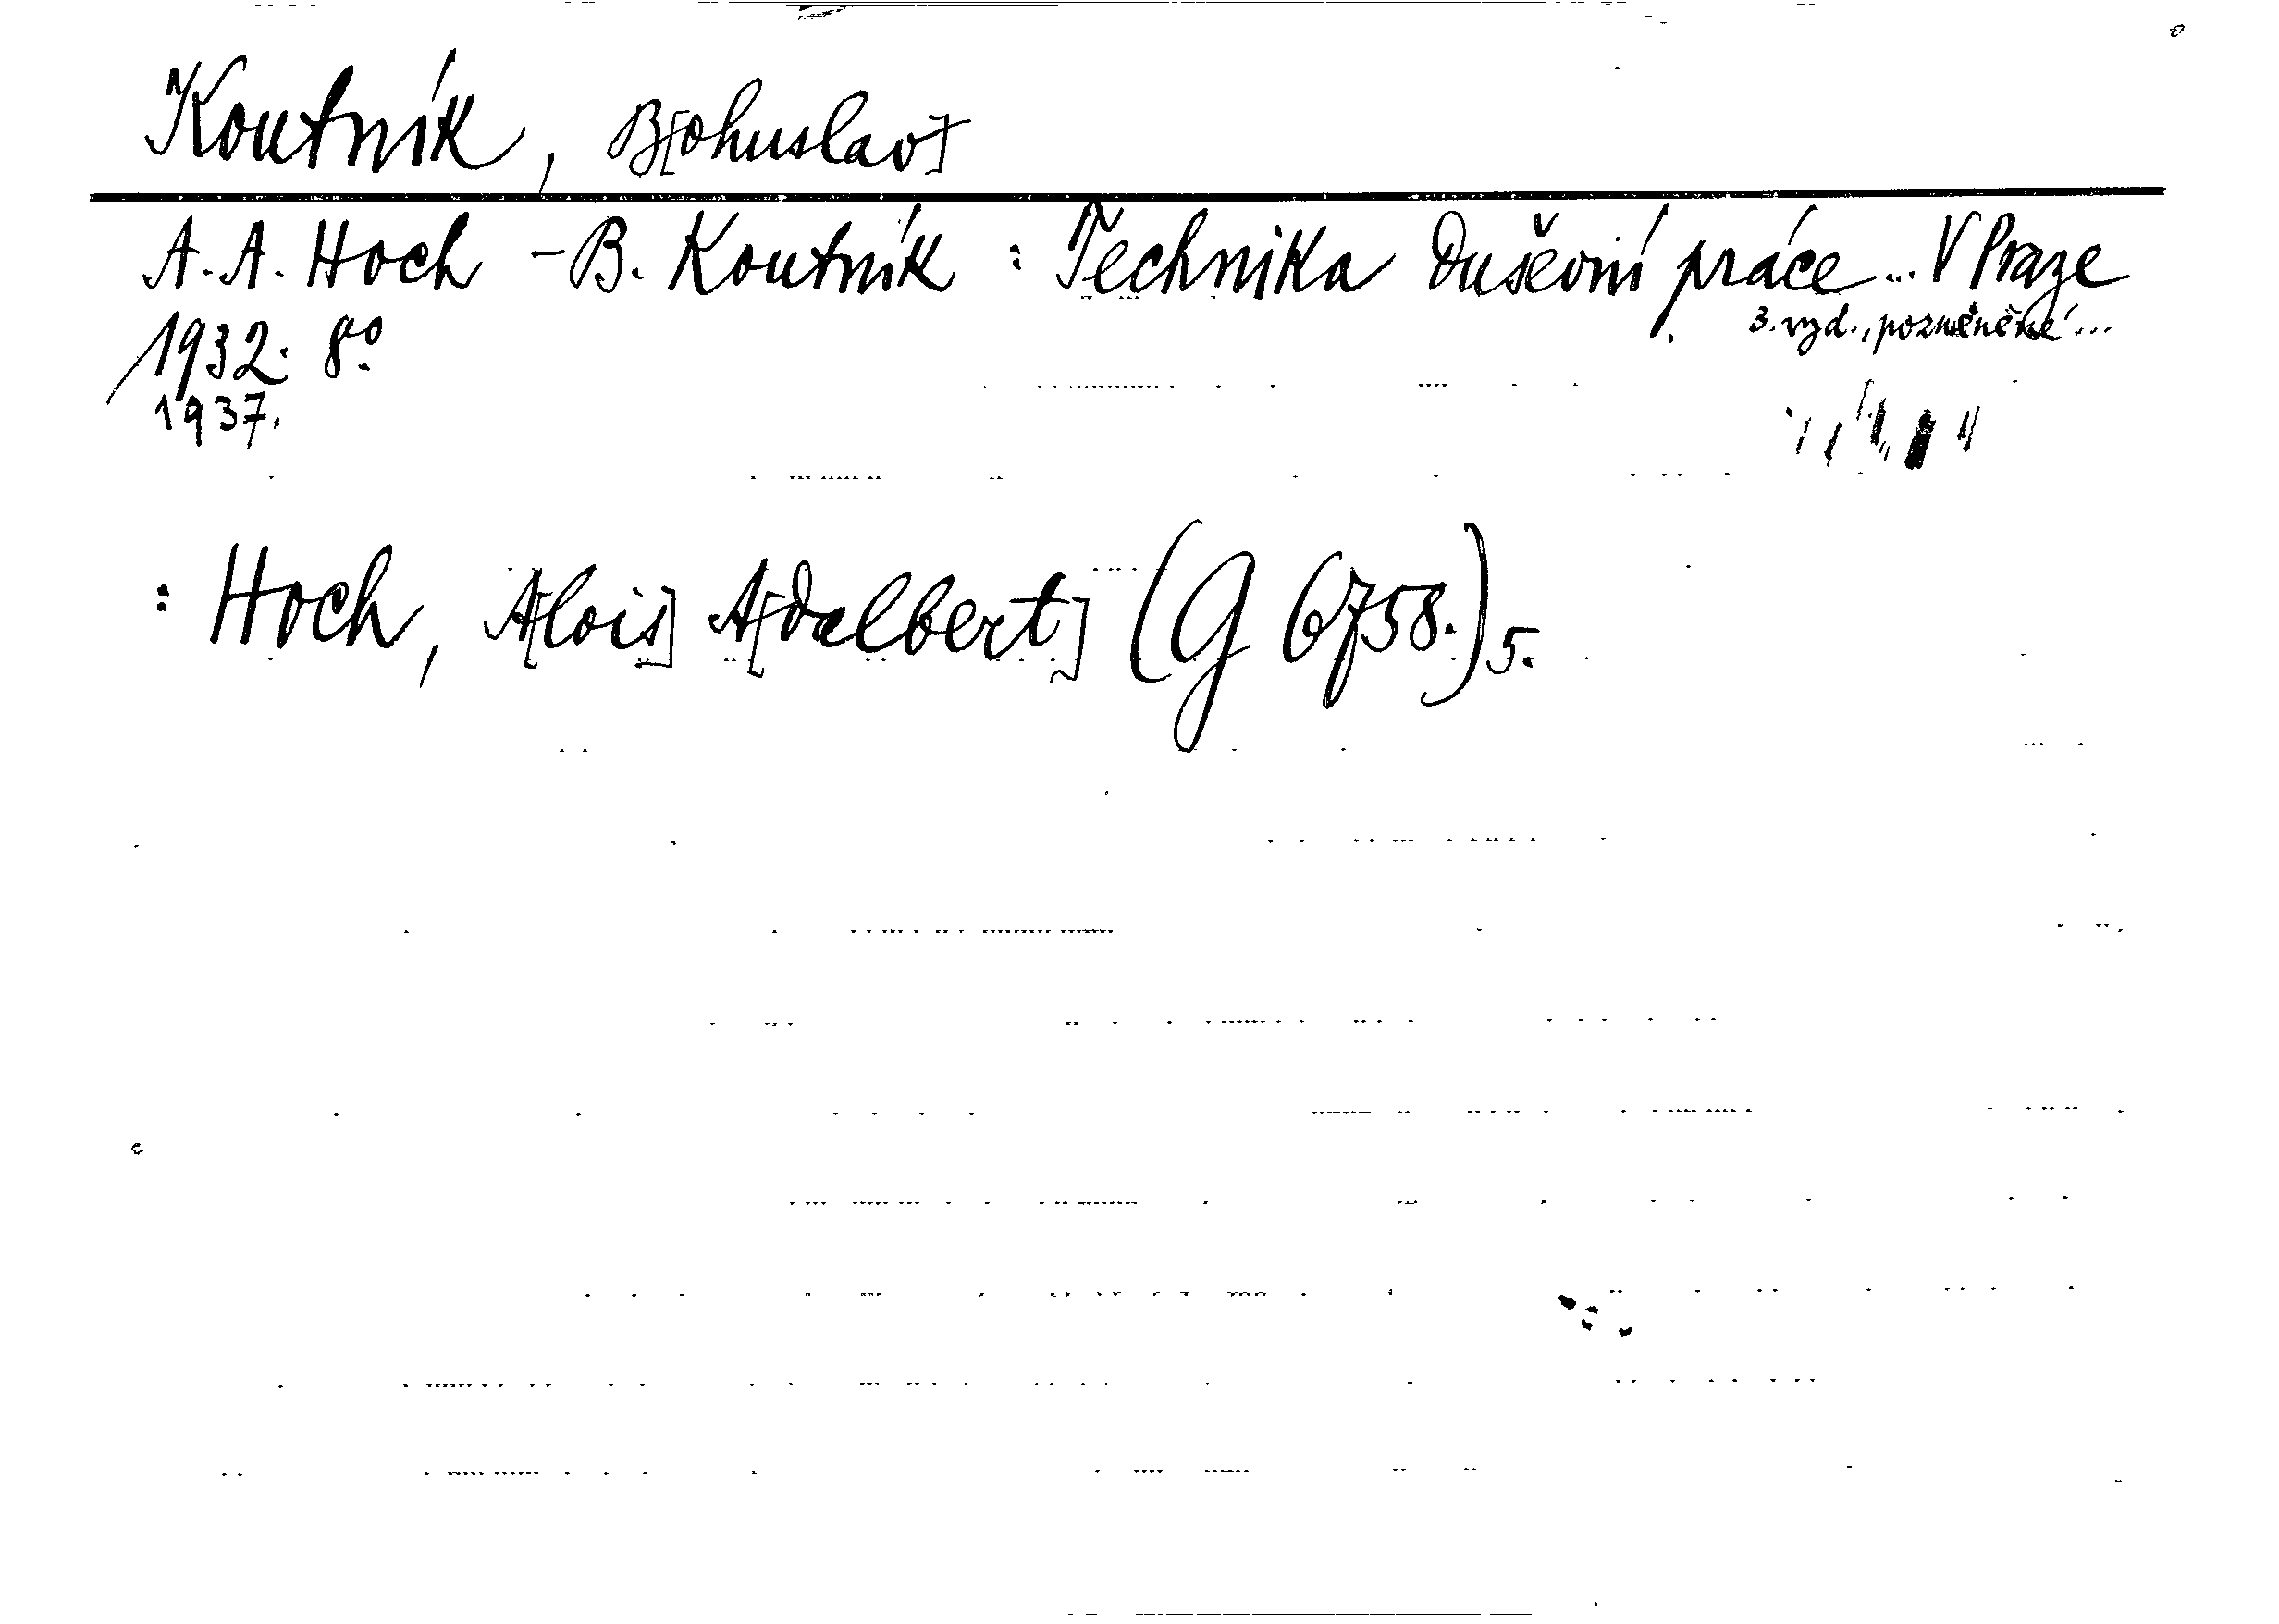 Koutník, B[ohuslav]
A. A. Hoch - B. Koutník : Technika duševní práce ... V Praze
1932. 8°.
3. vyd., pozměněné ...
1937.
: Hoch, A[lois] A[dalbert] (G 6758.) 5.